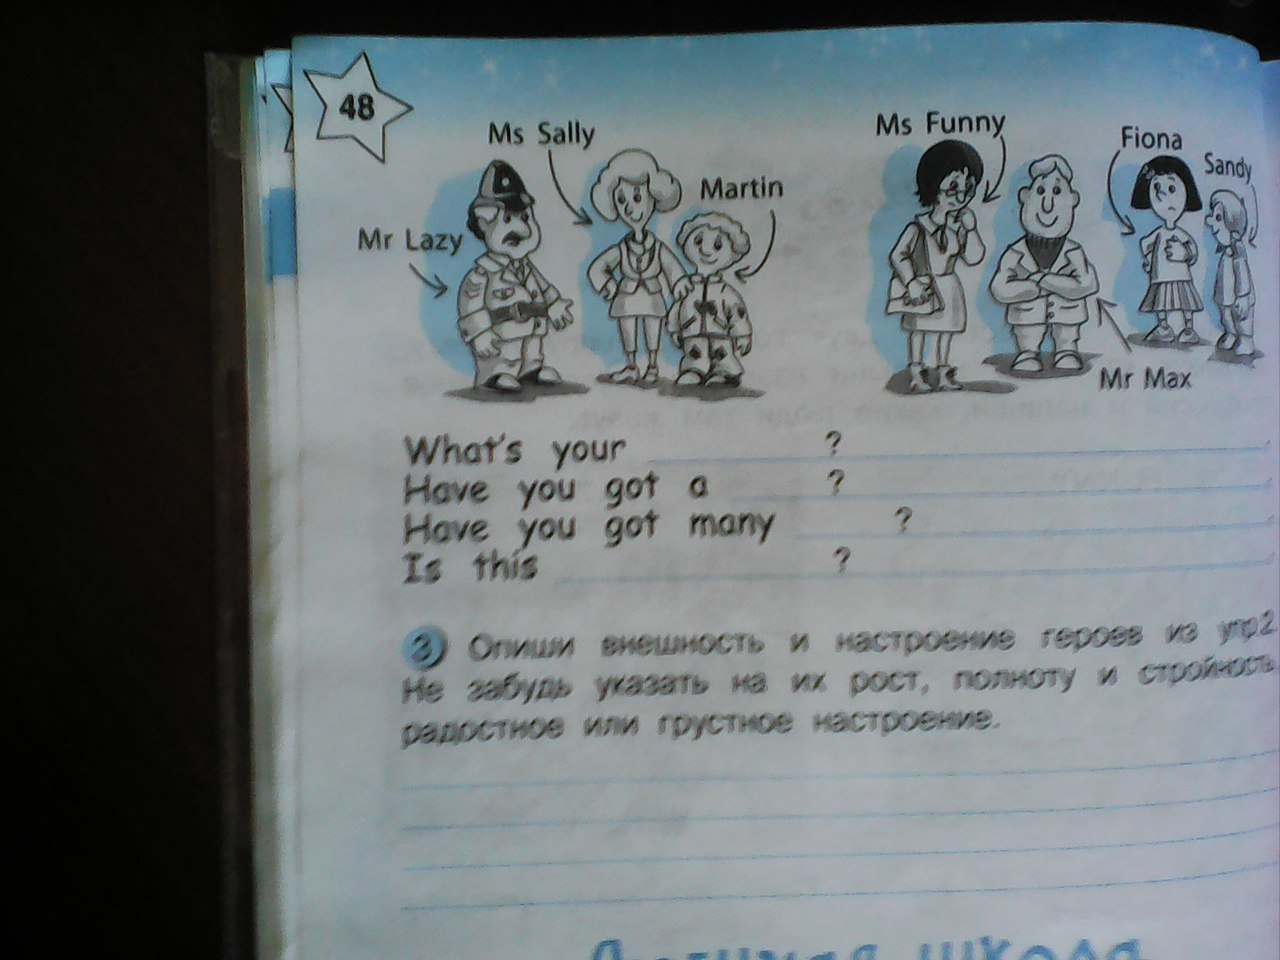 48
Ms Sally
Ms Funny
Fiona
Sandy
Martin
Mr Lazy
Mr Max
What's your ?
Have you got a ?
Have you got many ?
Is this ?
3 Опиши внешность и настроение героев из упр2.
Не забудь указать на их рост, полноту и стройность,
радостное или грустное настроение.
школа